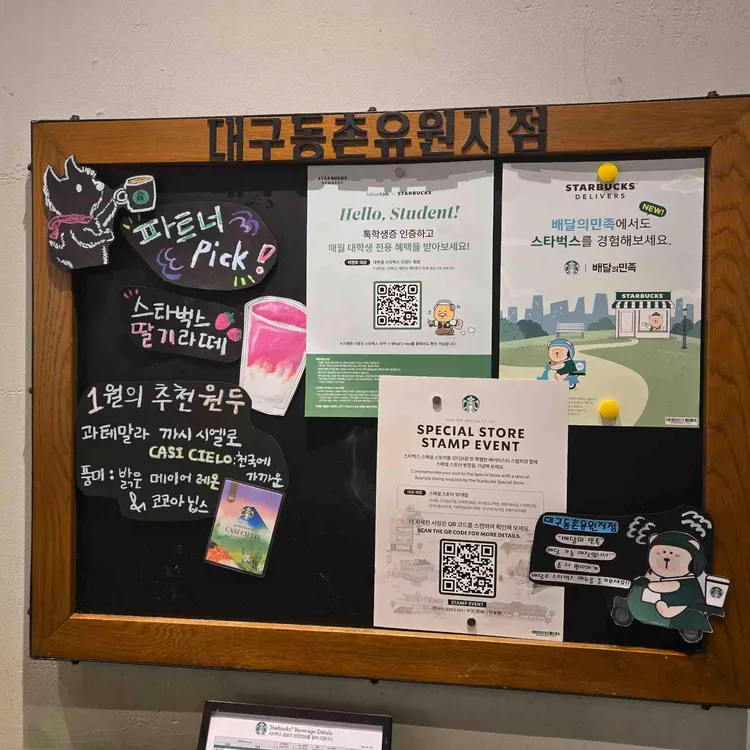 대구동촌유원지점
파트너
Pick!
스타벅스
딸기라떼
1월의 추천 원두
과테말라 까시 시엘로
CASI CIELO: 천국에
가까운
풍미: 밝은 메이어 레몬
& 코코아닙스
CASI CIELO
STARBUCKS
REWARDS
kakaotalk × STARBUCKS
Hello, Student!
톡학생증 인증하고
매월 대학생 전용 혜택을 받아보세요!
STARBUCKS
DELIVERS
NEW!
배달의민족에서도
스타벅스를 경험해보세요.
배달의민족
STARBUCKS
SPECIAL STORE
STAMP EVENT
스타벅스 스페셜 스토어를 모티브로 한 특별한 베어리스타 스탬프와 함께
스페셜 스토어 방문을 기념해 보세요.
Commemorate your visit to the Special Store with a special
Bearista stamp inspired by the Starbucks Special Store.
스페셜 스토어 10개점
더 자세한 사항은 QR 코드를 스캔하여 확인해 보세요.
SCAN THE QR CODE FOR MORE DETAILS.
STAMP EVENT
대구동촌유원지점
"배달의 민족"
배달 가능 매장입니다
좀 더 편리하게
배달로 스타벅스 메뉴를 즐겨보세요!!
Starbucks® Beverage Details